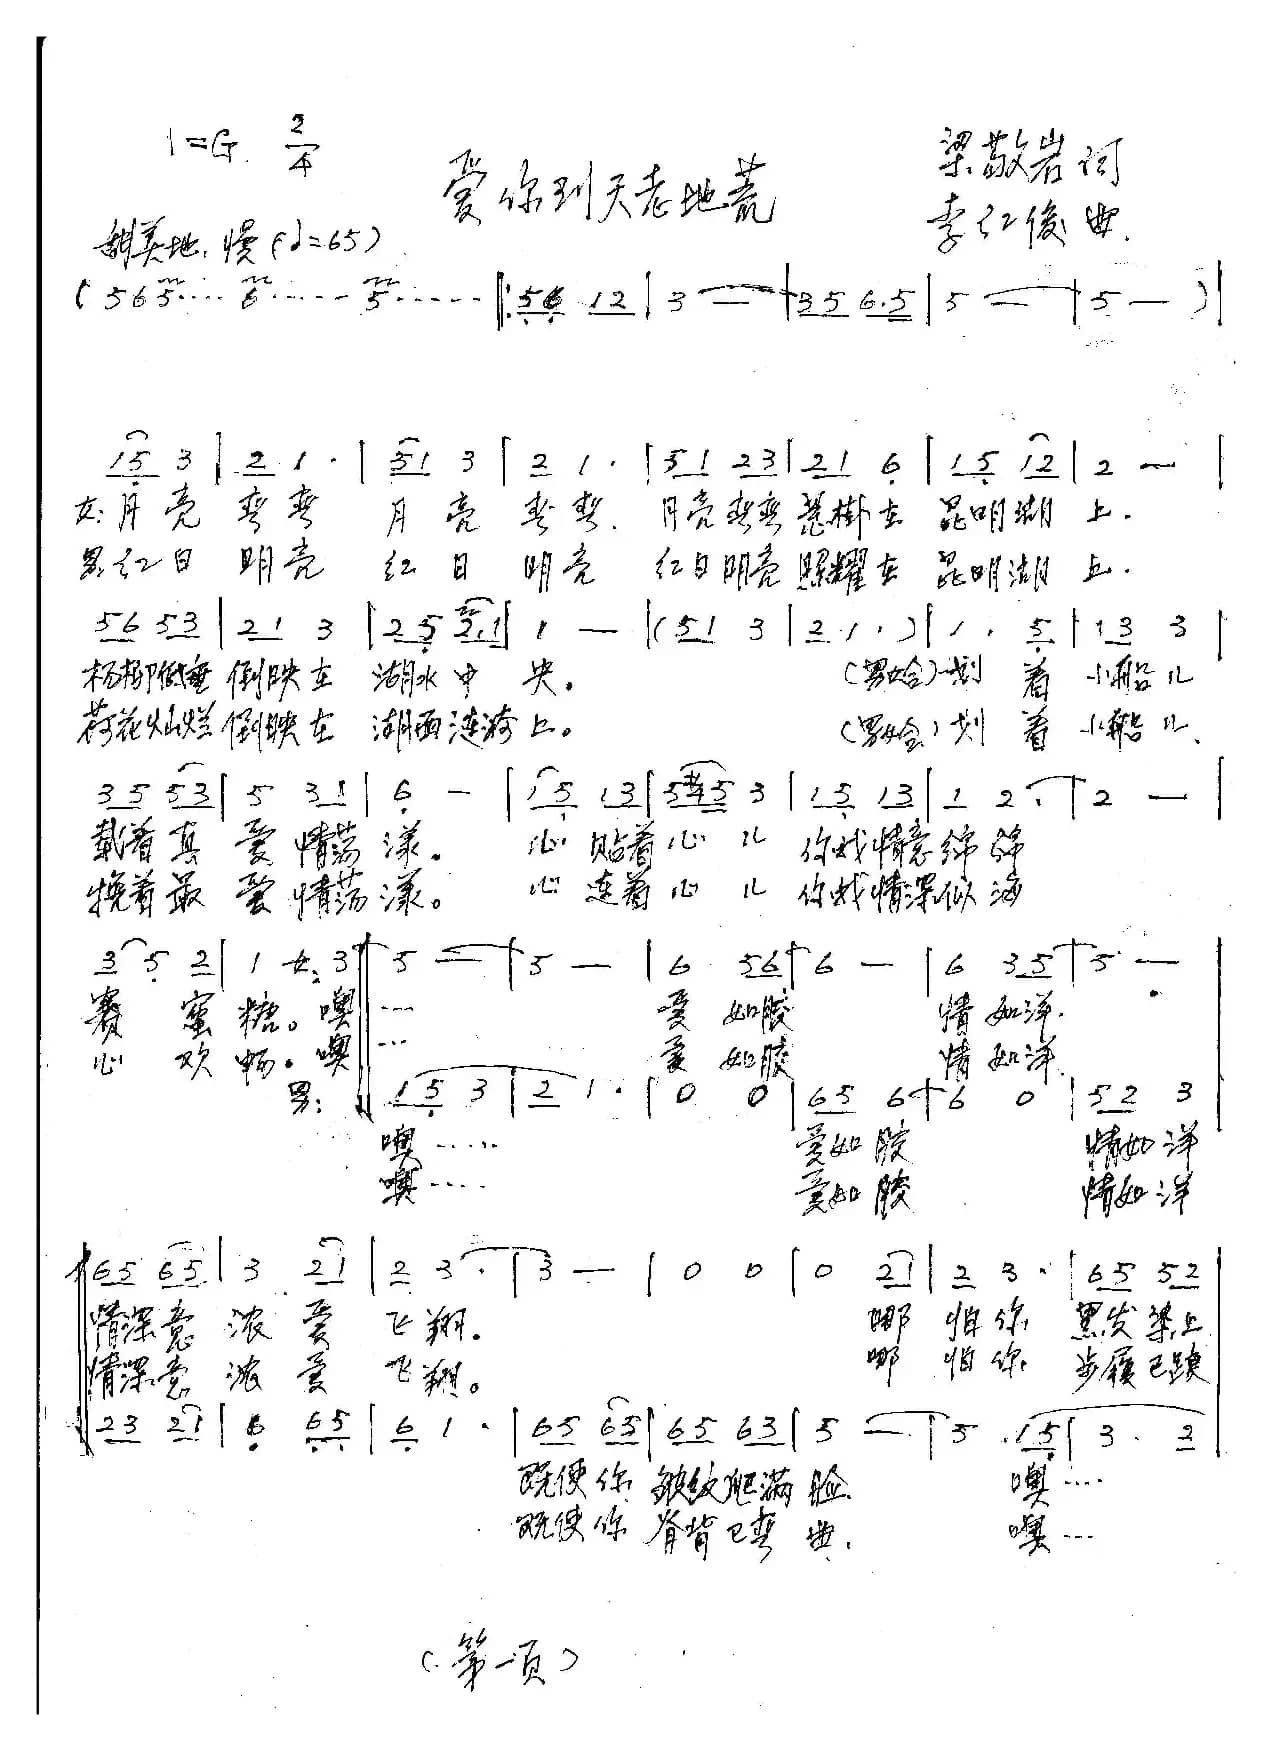 1=G 2/4
爱你到天老地荒
梁敬岩词
李红俊曲.
甜美地.慢(♩=65)
(5 6 5···· 6······ 5······ ‖: 5 6 1 2 | 3 — | 3 5 6.5 | 5 — | 5 — ) |
1 5 3 | 2 1 · | 5 1 3 | 2 1 · | 5 1 2 3 | 2 1 6 | 1 5 1 2 | 2 — |
女:月亮 弯弯 月亮 弯弯. 月亮弯弯 悬掛在 昆明湖 上.
男:红日 明亮 红日 明亮 红日明亮 照耀在 昆明湖 上.
5 6 5 3 | 2 1 3 | 2 5 2.1 | 1 — | (5 1 3 | 2 1 ·) | 1 · 5 | 1 3 3 |
杨柳低垂 倒映在 湖水中 央。 (男女合)划 着 小船儿
荷花灿烂 倒映在 湖面涟漪 上。 (男女合)划 着 小船儿
3 5 5 3 | 5 3 1 | 6 — | 1 5 1 3 | 5 #4 5 3 | 1 5 1 3 | 1 2 · | 2 — |
载着真 爱 情荡 漾。 心 贴着 心 儿 你我情意 绵 绵
挽着最 爱 情荡 漾。 心 连着 心 儿 你我情深 似 海
3 5 2 | 1 女: 3 ‖ 5 — | 5 — | 6 5 6 | 6 — | 6 3 5 | 5 — |
赛 蜜 糖。噢 ···· 爱 如胶 情 如洋.
心 欢 畅。噢 ··· 爱 如胶 情 如洋.
男: 1 5 3 | 2 1 · | 0 0 | 6 5 6 | 6 0 | 5 2 3
噢····· 爱如 胶 情如 洋
噢···· 爱如 胶 情如 洋
6 5 6 5 | 3 2 1 | 2 3 · | 3 — | 0 0 | 0 2 1 | 2 3 · | 6 5 5 2
情深意 浓 爱 飞 翔. 哪 怕 你 黑发 染上
情深意 浓 爱 飞 翔。 哪 怕 你 步履 已踉
2 3 2 1 | 6 6 5 | 6 1 · | 6 5 6 5 | 6 5 6 3 | 5 — | 5 · 1 5 | 3 · 2 |
既使你 皱纹爬满 脸. 噢····
既使你 脊背已弯 曲. 噢···
(第一页)